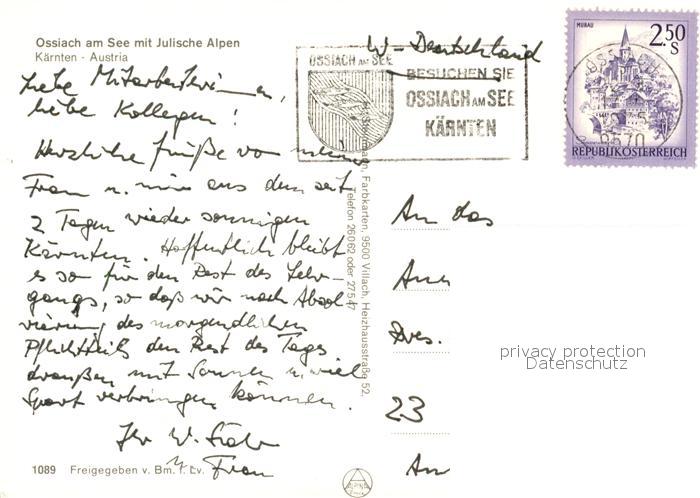 Ossiach am See mit Julische Alpen
Kärnten - Austria
W-Deutschland
OSSIACH AM SEE
BESUCHEN SIE
OSSIACH AM SEE
KÄRNTEN
MURAU
2.50
S
OSSIACH
9570
REPUBLIK ÖSTERREICH
Liebe Mitarbeiterinnen,
liebe Kollegen!
Herzliche Grüße von meiner
Frau u. mir aus dem seit
2 Tagen wieder sonnigen
Kärnten. Hoffentlich bleibt
es so für den Rest des Lehr-
gangs, so daß wir nach Absol-
vierung des morgendlichen
Pflichtteils den Rest des Tages
draußen mit Sonnen u. viel
Sport verbringen können.
Ihr W.
u. Frau
Farbkarten, 9500 Villach, Heizhausstraße 52,
Telefon 26062 oder 27547
An das
Dres.
23
privacy protection
Datenschutz
1089 Freigegeben v. Bm. f. Lv.
ALPINE